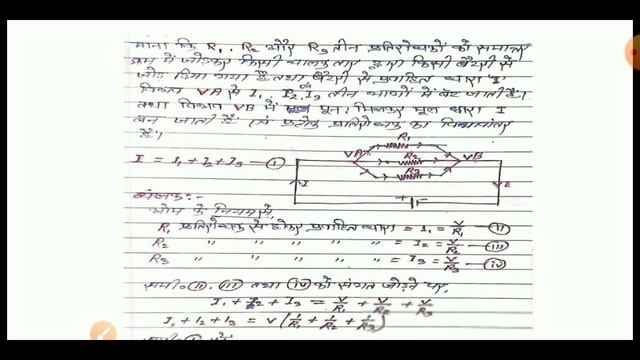 माना कि R₁, R₂ और R₃ तीन प्रतिरोधकों को समान्तर
क्रम में जोड़कर किसी चालक तार द्वारा किसी बैटरी से
जोड़ दिया गया है तथा बैटरी से प्रवाहित धारा 'I'
विभव VA से I₁, I₂, I₃ तीन भागों में बँट जाती है।
तथा विभव VB में पुनः मिलकर मूल धारा I
बन जाती है। एवं प्रत्येक प्रतिरोधक का विभवांतर
है।
R₁
VA R₂ VB
I = I₁ + I₂ + I₃ — (i)
R₃
I
+ -
ओम के नियम से,
R₁ प्रतिरोधक से होकर प्रवाहित धारा = I₁ = V/R₁ — (ii)
R₂ " " " " " = I₂ = V/R₂ — (iii)
R₃ " " " " " = I₃ = V/R₃ — (iv)
समी० (ii), (iii) तथा (iv) को संगत जोड़ने पर,
I₁ + I₂ + I₃ = V/R₁ + V/R₂ + V/R₃
I₁ + I₂ + I₃ = V(1/R₁ + 1/R₂ + 1/R₃)